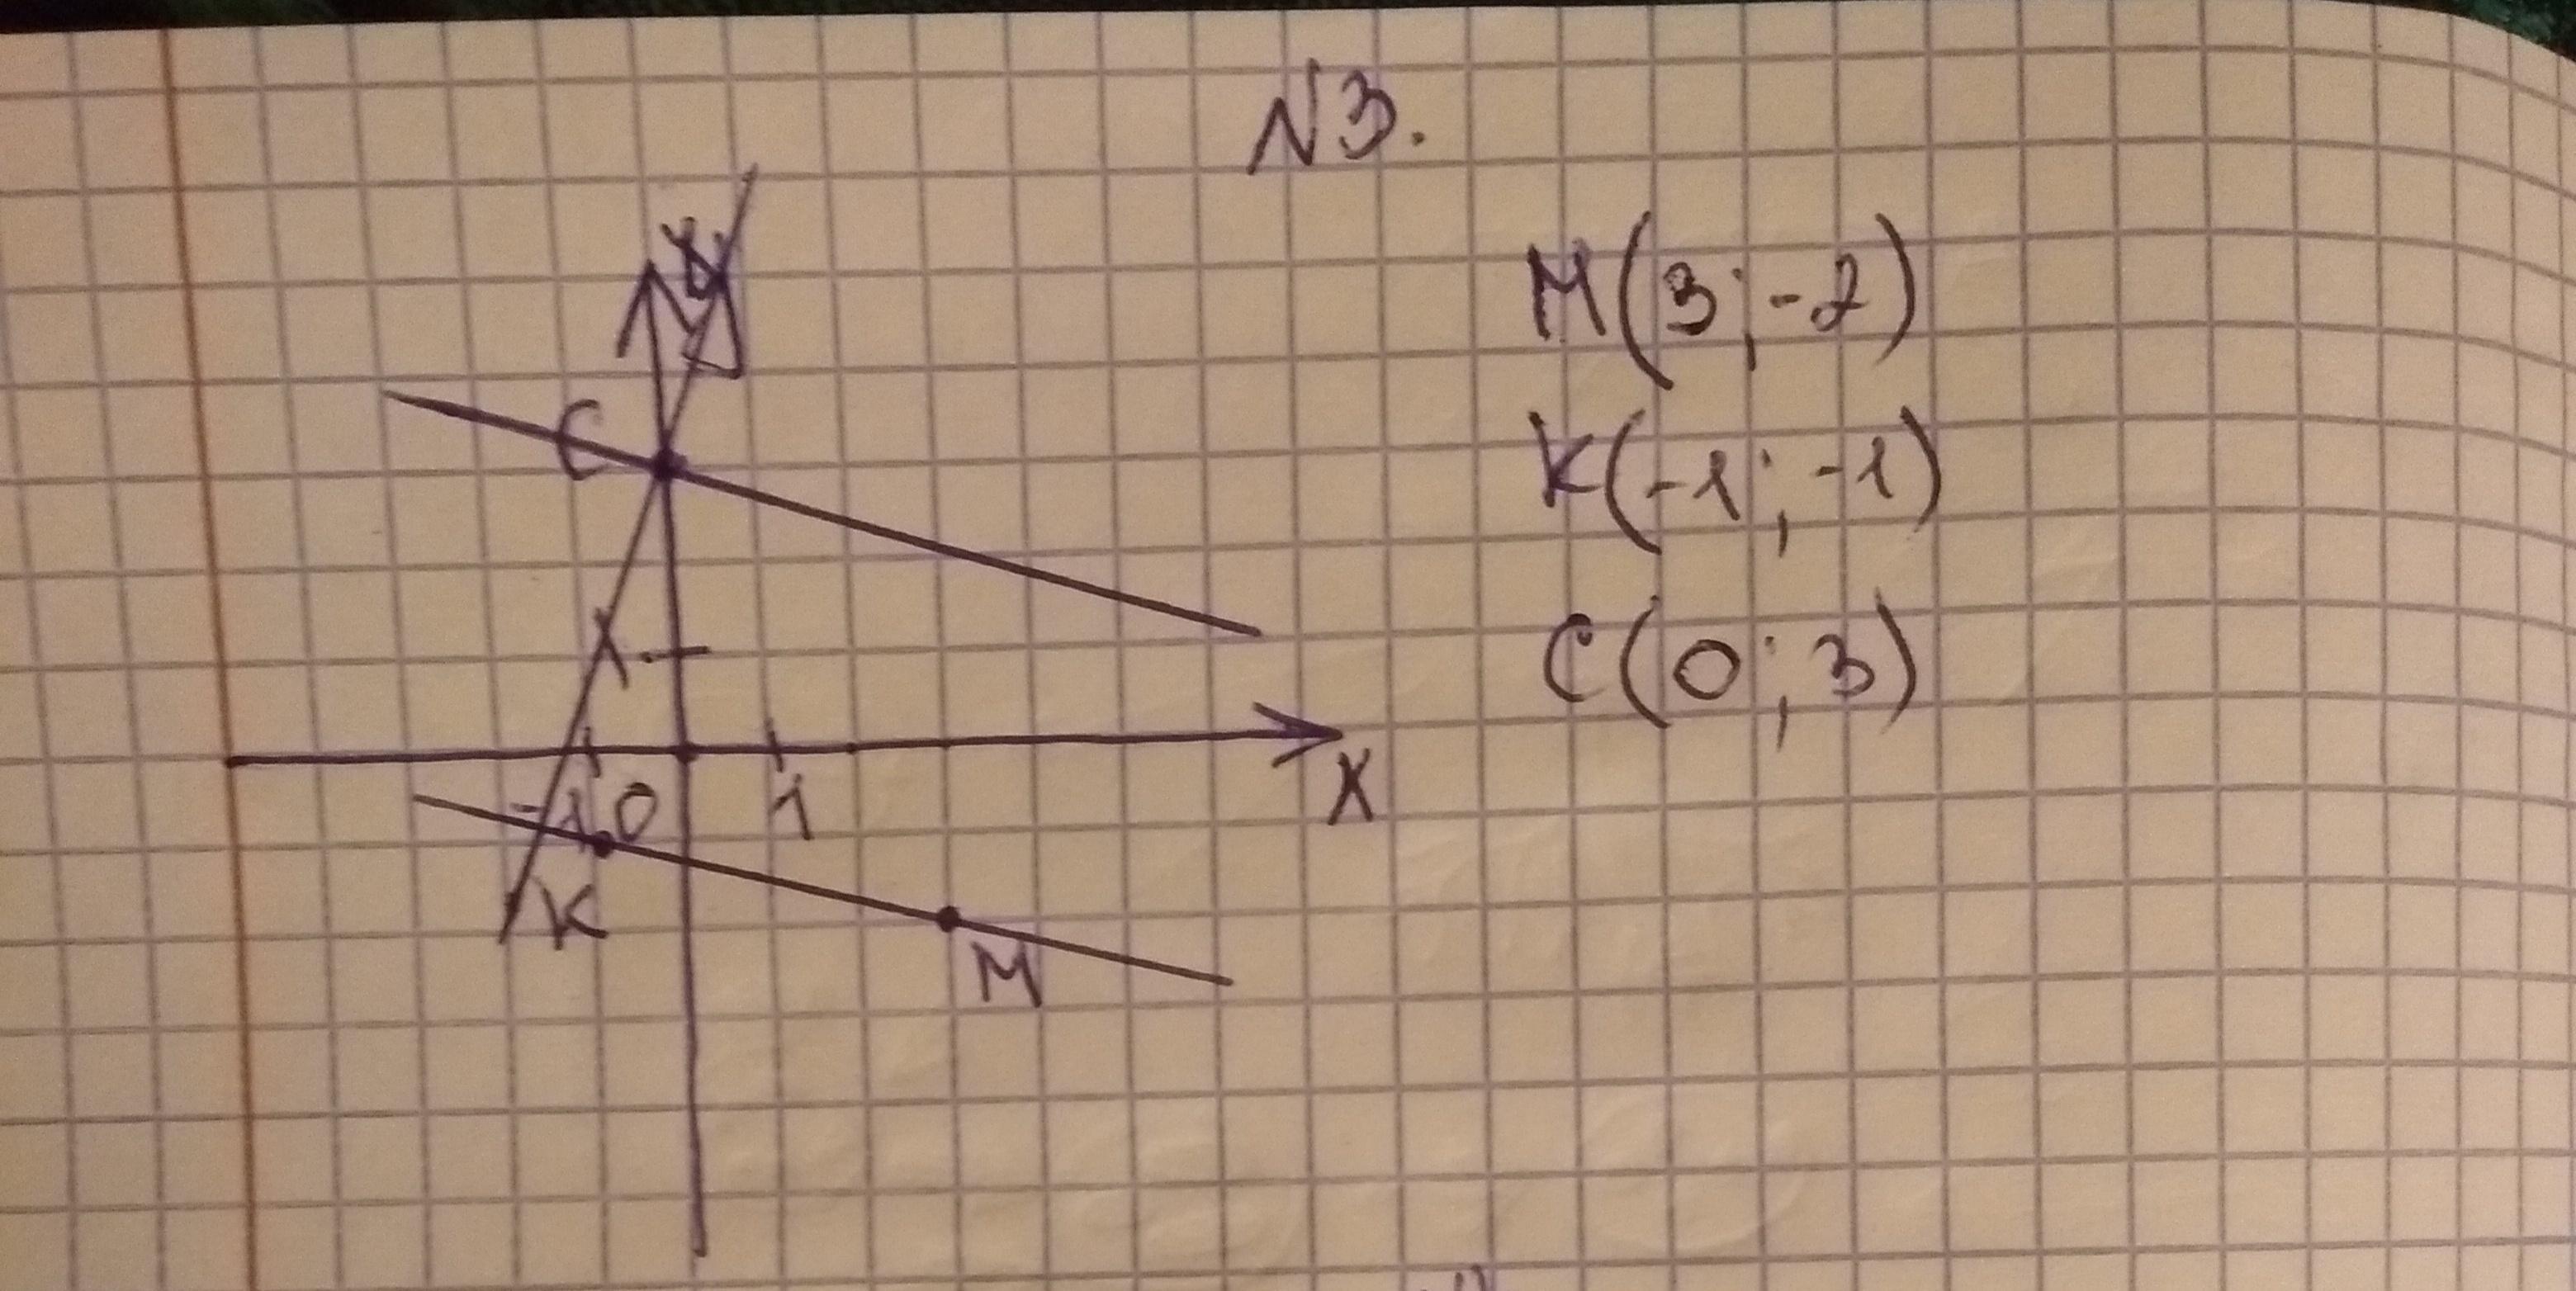 N3.
M(3;-2)
K(-1;-1)
C(0;3)
C
-1 0 1
X
K
M